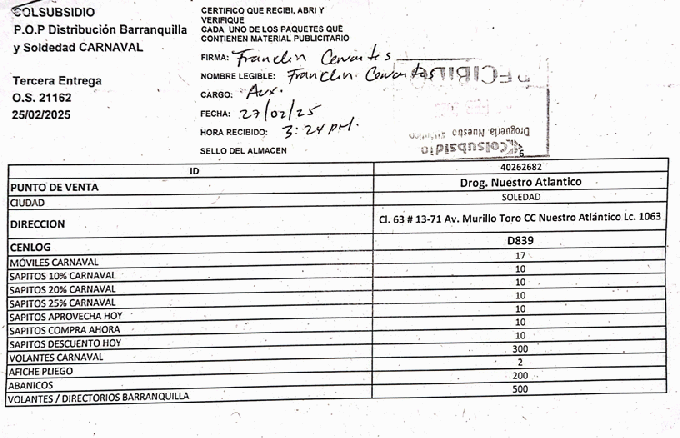 COLSUBSIDIO
P.O.P Distribución Barranquilla
y Soledad CARNAVAL
Tercera Entrega
O.S. 21162
25/02/2025
CERTIFICO QUE RECIBI, ABRI Y
VERIFIQUE
CADA UNO DE LOS PAQUETES QUE
CONTIENEN MATERIAL PUBLICITARIO
FIRMA: Franclin Cervantes
NOMBRE LEGIBLE: Franclin Cervantes
CARGO: Aux.
FECHA: 27/02/25
HORA RECIBIDO: 3:24 pm.
SELLO DEL ALMACEN
RECIBIDO
Droguería Nuestro
Colsubsidio
ID 40262682
PUNTO DE VENTA Drog. Nuestro Atlantico
CIUDAD SOLEDAD
DIRECCION Cl. 63 # 13-71 Av. Murillo Toro CC Nuestro Atlántico Lc. 1063
CENLOG D839
MÓVILES CARNAVAL 17
SAPITOS 10% CARNAVAL 10
SAPITOS 20% CARNAVAL 10
SAPITOS 25% CARNAVAL 10
SAPITOS APROVECHA HOY 10
SAPITOS COMPRA AHORA 10
SAPITOS DESCUENTO HOY 10
VOLANTES CARNAVAL 300
AFICHE PLIEGO 2
ABANICOS 200
VOLANTES / DIRECTORIOS BARRANQUILLA 500